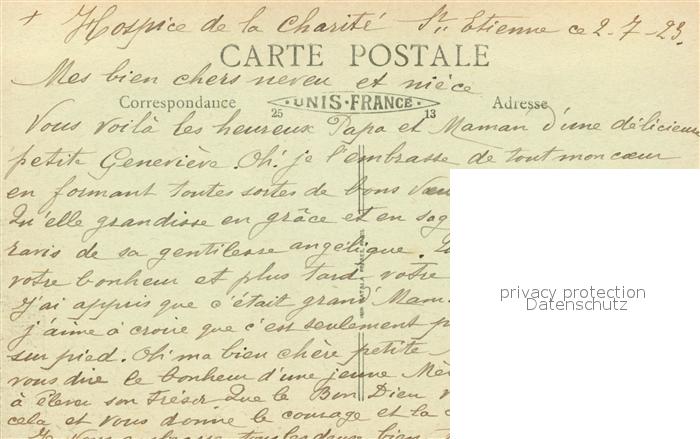 + Hospice de la Charité St Etienne ce 2-7-23.
CARTE POSTALE
Mes bien chers neveu et nièce
Correspondance UNIS-FRANCE Adresse
25 13
Vous voilà les heureux Papa et Maman d'une délicieuse
petite Geneviève. Oh! je l'embrasse de tout mon cœur
en formant toutes sortes de bons
Qu'elle grandisse en grâce et en
ravis de sa gentilesse angélique.
votre bonheur et plus tard votre
J'ai appris que c'était grand' Mam
j'aime à croire que c'est seulement
sur pied. Oh! ma bien chère petite
vous dire le bonheur d'une jeune
à élever son trésor Que le Bon Dieu
cela et vous donne le courage et la
Je vous embrasse tous les deux bien
privacy protection
Datenschutz